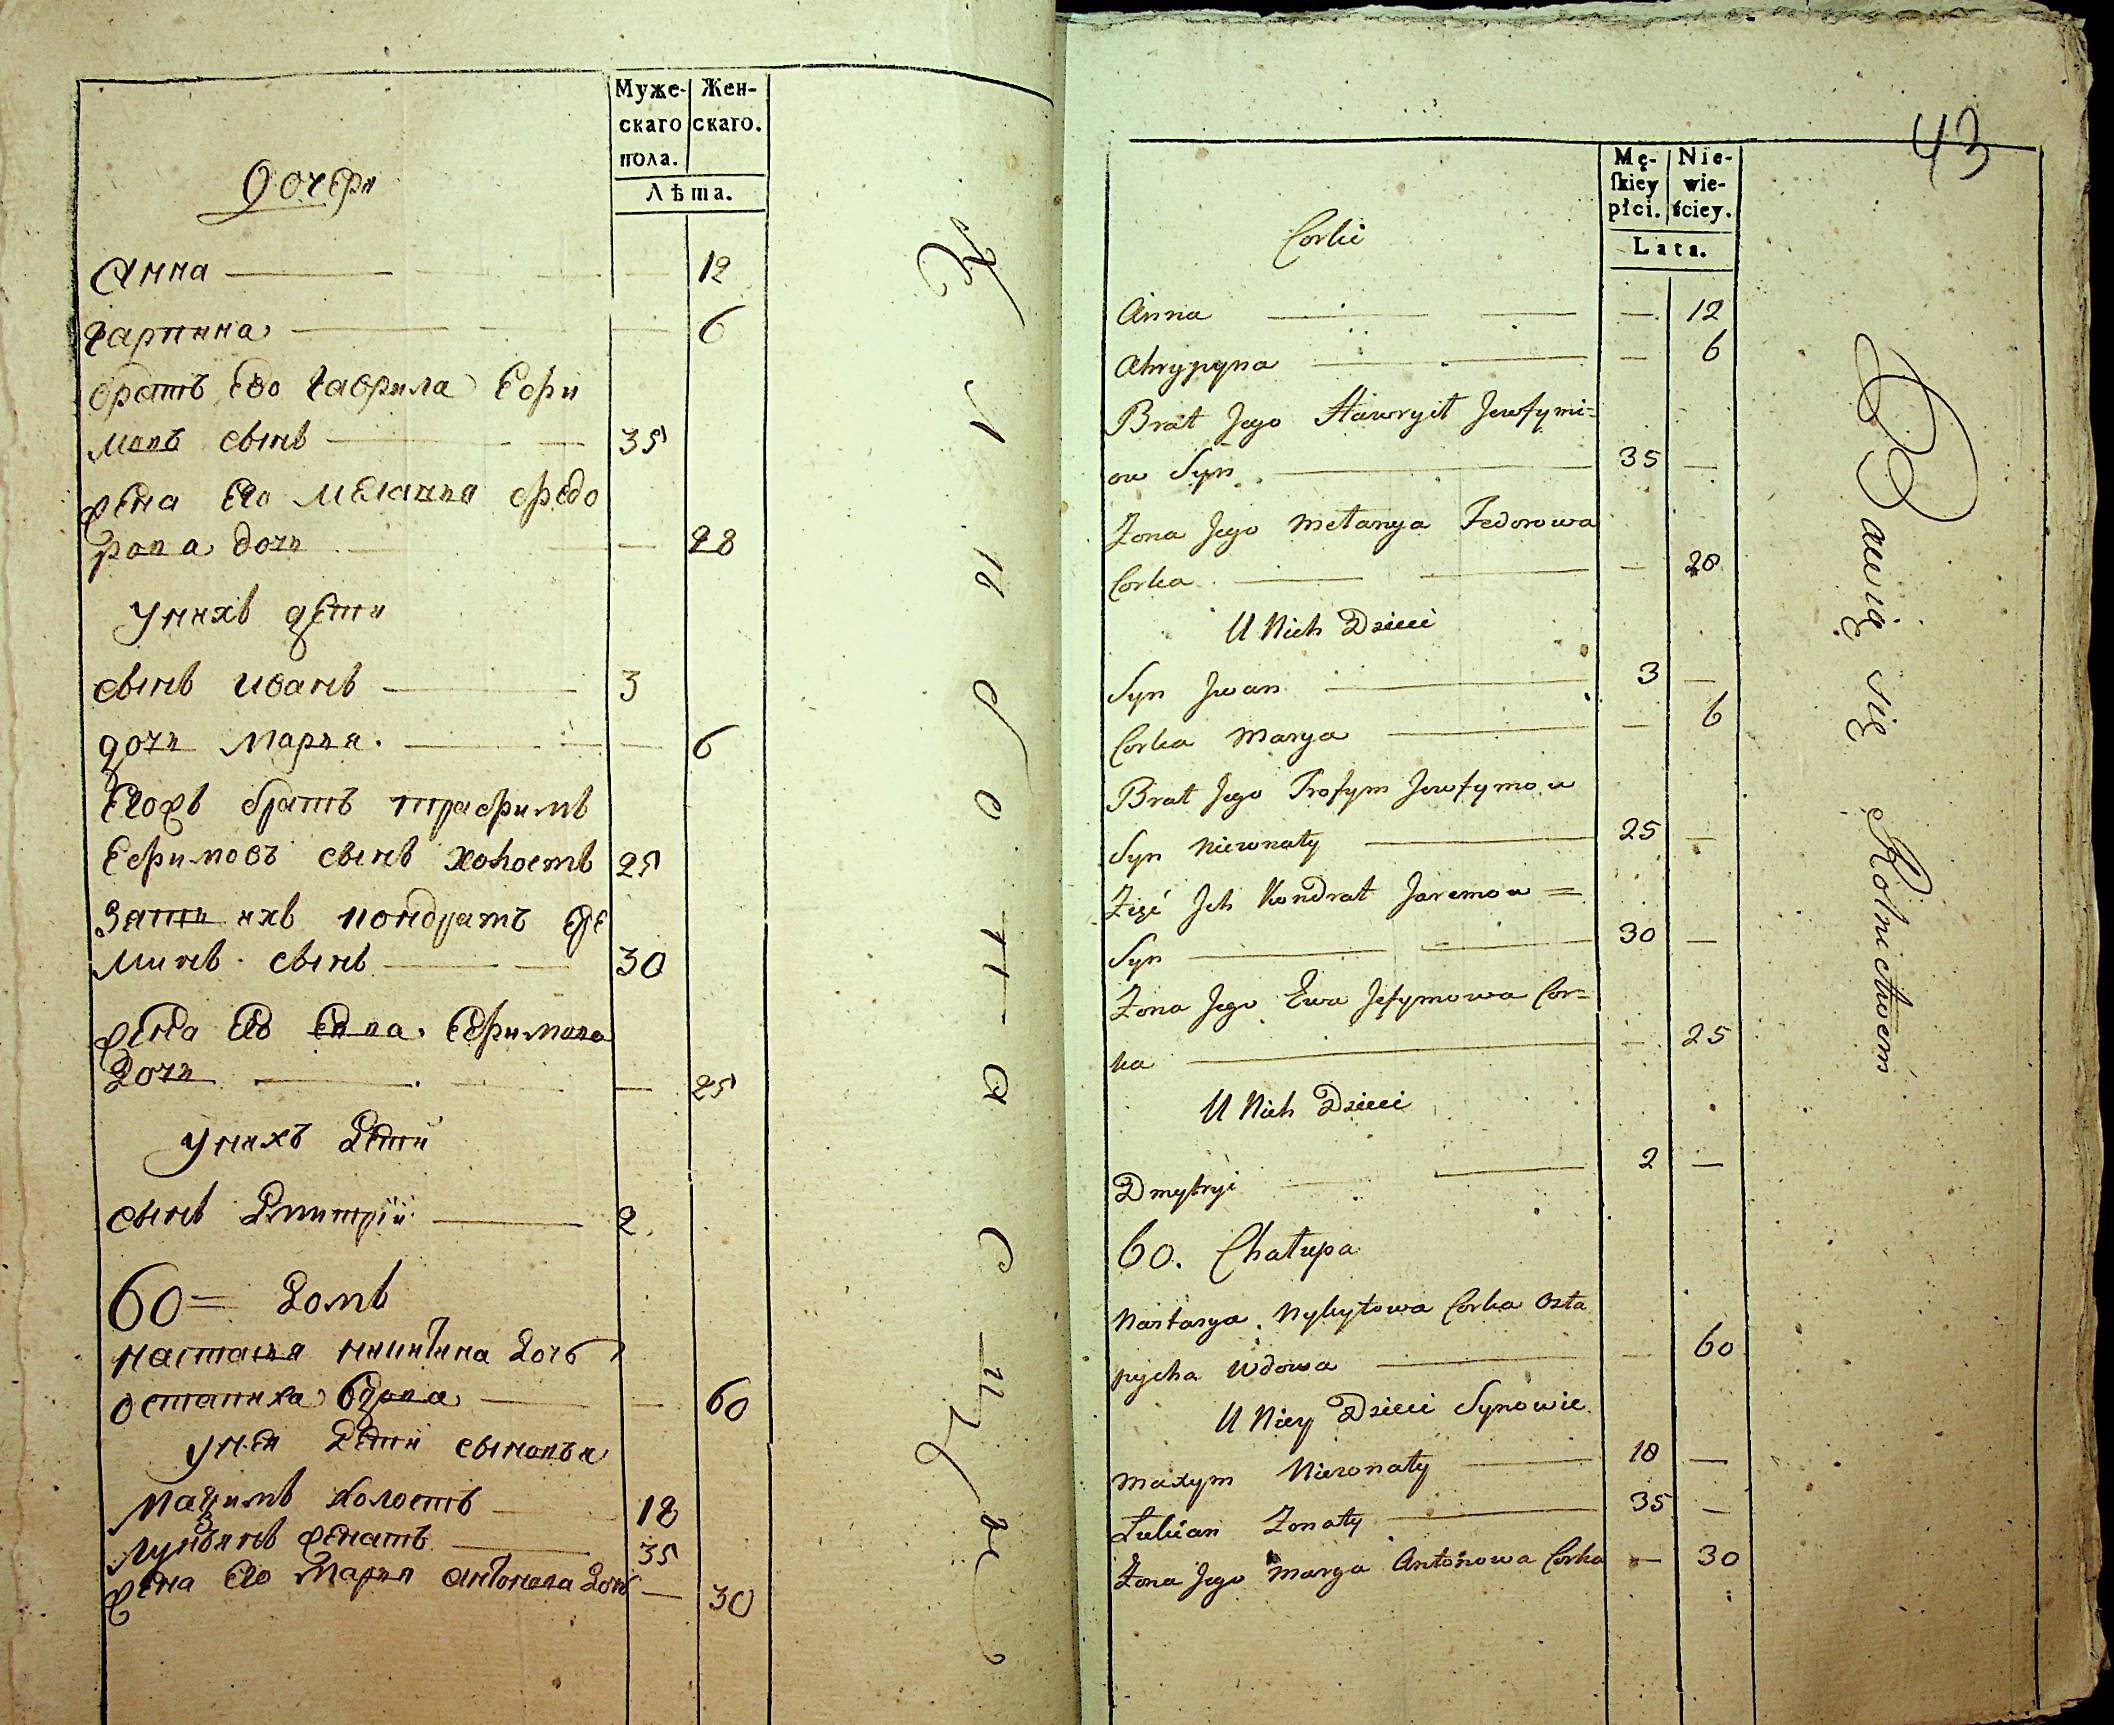 Муже-
скаго
пола.
Жен-
скаго.
Лѣта.
Дочери
Анна — 12
Гарпина — 6
братъ Его Гаврила Ефи
мовъ сынъ — 35
жена Его Мелания Федо
рова дочь — 28
У нихъ дети
сынъ Иванъ — 3
дочь Мария — 6
Егожъ братъ Трафимъ
Ефимовъ сынъ холостъ 25
Зять ихъ Кондратъ Яре
минъ сынъ — 30
жена Его Евва Ефимова
Дочь — 25
У нихъ Дети
сынъ Дмитрїй — 2
60 = Домъ
Настасия Никитина Дочь
Остапиха вдова — 60
У неи Дети сыновья
Максимъ холостъ 18
Лукьянъ женатъ 35
жена Его Мария Антонова Дочь — 30
43
Mę-
skiey
płci.
Nie-
wie-
ściey.
Lata.
Corki
Anna — 12
Ahrypyna — 6
Brat Jego Hawryił Jewfymi=
ow Syn — 35 —
Żona Jego Mełanya Fedorowa
Corka — 28
U Nich Dzieci
Syn Jwan — 3 —
Corka Marya — 6
Brat Jego Trofym Jewfymow
Syn Nieżonaty — 25 —
Zięć Jch Kondrat Jaremow =
Syn — 30 —
Żona Jego Ewa Jefymowa Cor=
ka — 25
U Nich Dzieci
Dmytryi — 2 —
60. Chałupa
Nastasya Nykytowa Corka Osta
pycha Wdowa — 60
U Niey Dzieci Synowie
Maxym Nieżonaty — 18 —
Łukian Żonaty — 35 —
Żona Jego Marya Antonowa Corka — 30
Bawią się Rolnictwem